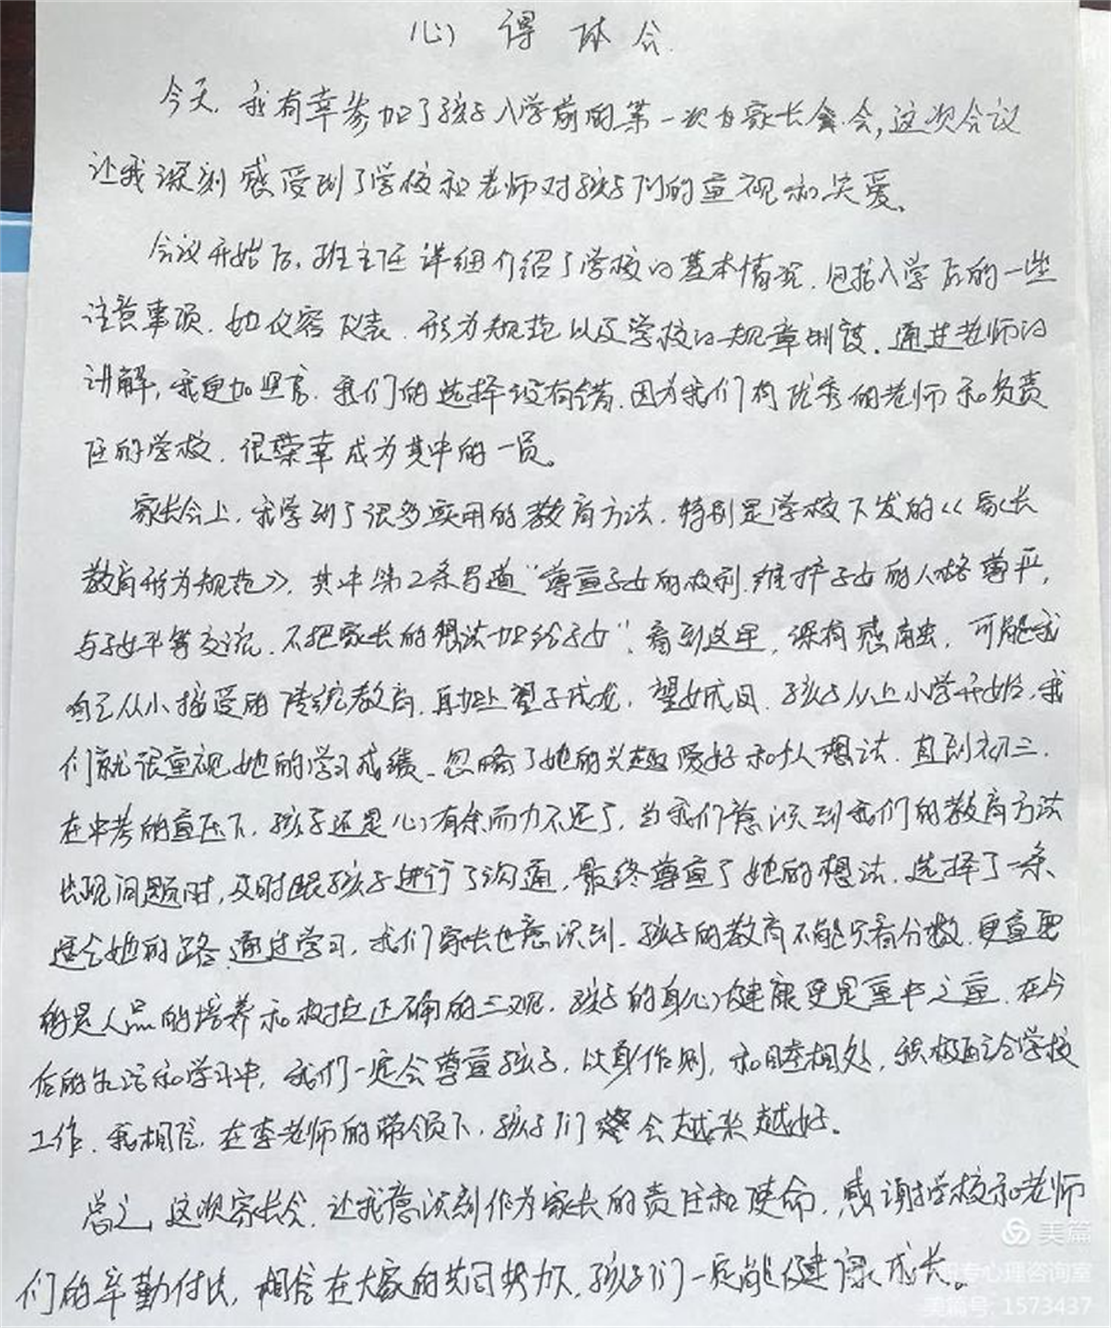 心得体会
今天,我有幸参加了孩子入学前的第一次的家长会,这次会议
让我深刻感受到了学校和老师对孩子们的重视和关爱。
会议开始后,班主任详细介绍了学校的基本情况,包括入学后的一些
注意事项,如仪容仪表,形为规范以及学校的规章制度,通过老师的
讲解,我更加坚定,我们的选择没有错,因为我们有优秀的老师和负责
任的学校,很荣幸成为其中的一员。
家长会上,我学到了很多实用的教育方法,特别是学校下发的《家长
教育形为规范》,其中第2条写道“尊重子女的权利,维护子女的人格尊严,
与子女平等交流,不把家长的想法加给子女”,看到这里,深有感触,可能我
自己从小接受的传统教育,再加上望子成龙,望女成凤,孩子从上小学开始,我
们就很重视她的学习成绩,忽略了她的兴趣爱好和个人想法,直到初三,
在中考的重压下,孩子还是心有余而力不足了,当我们意识到我们的教育方法
出现问题时,及时跟孩子进行了沟通,最终尊重了她的想法,选择了一条
适合她的路,通过学习,我们家长也意识到,孩子的教育不能只看分数,更重要
的是人品的培养和树立正确的三观,孩子的身心健康更是重中之重,在今
后的生活和学习中,我们一定会尊重孩子,以身作则,和睦相处,积极配合学校
工作,我相信,在李老师的带领下,孩子们会越来越好。
总之,这次家长会,让我意识到作为家长的责任和使命,感谢学校和老师
们的辛勤付出,相信在大家的共同努力下,孩子们一定能健康成长。
美篇
职专心理咨询室
美篇号:1573437